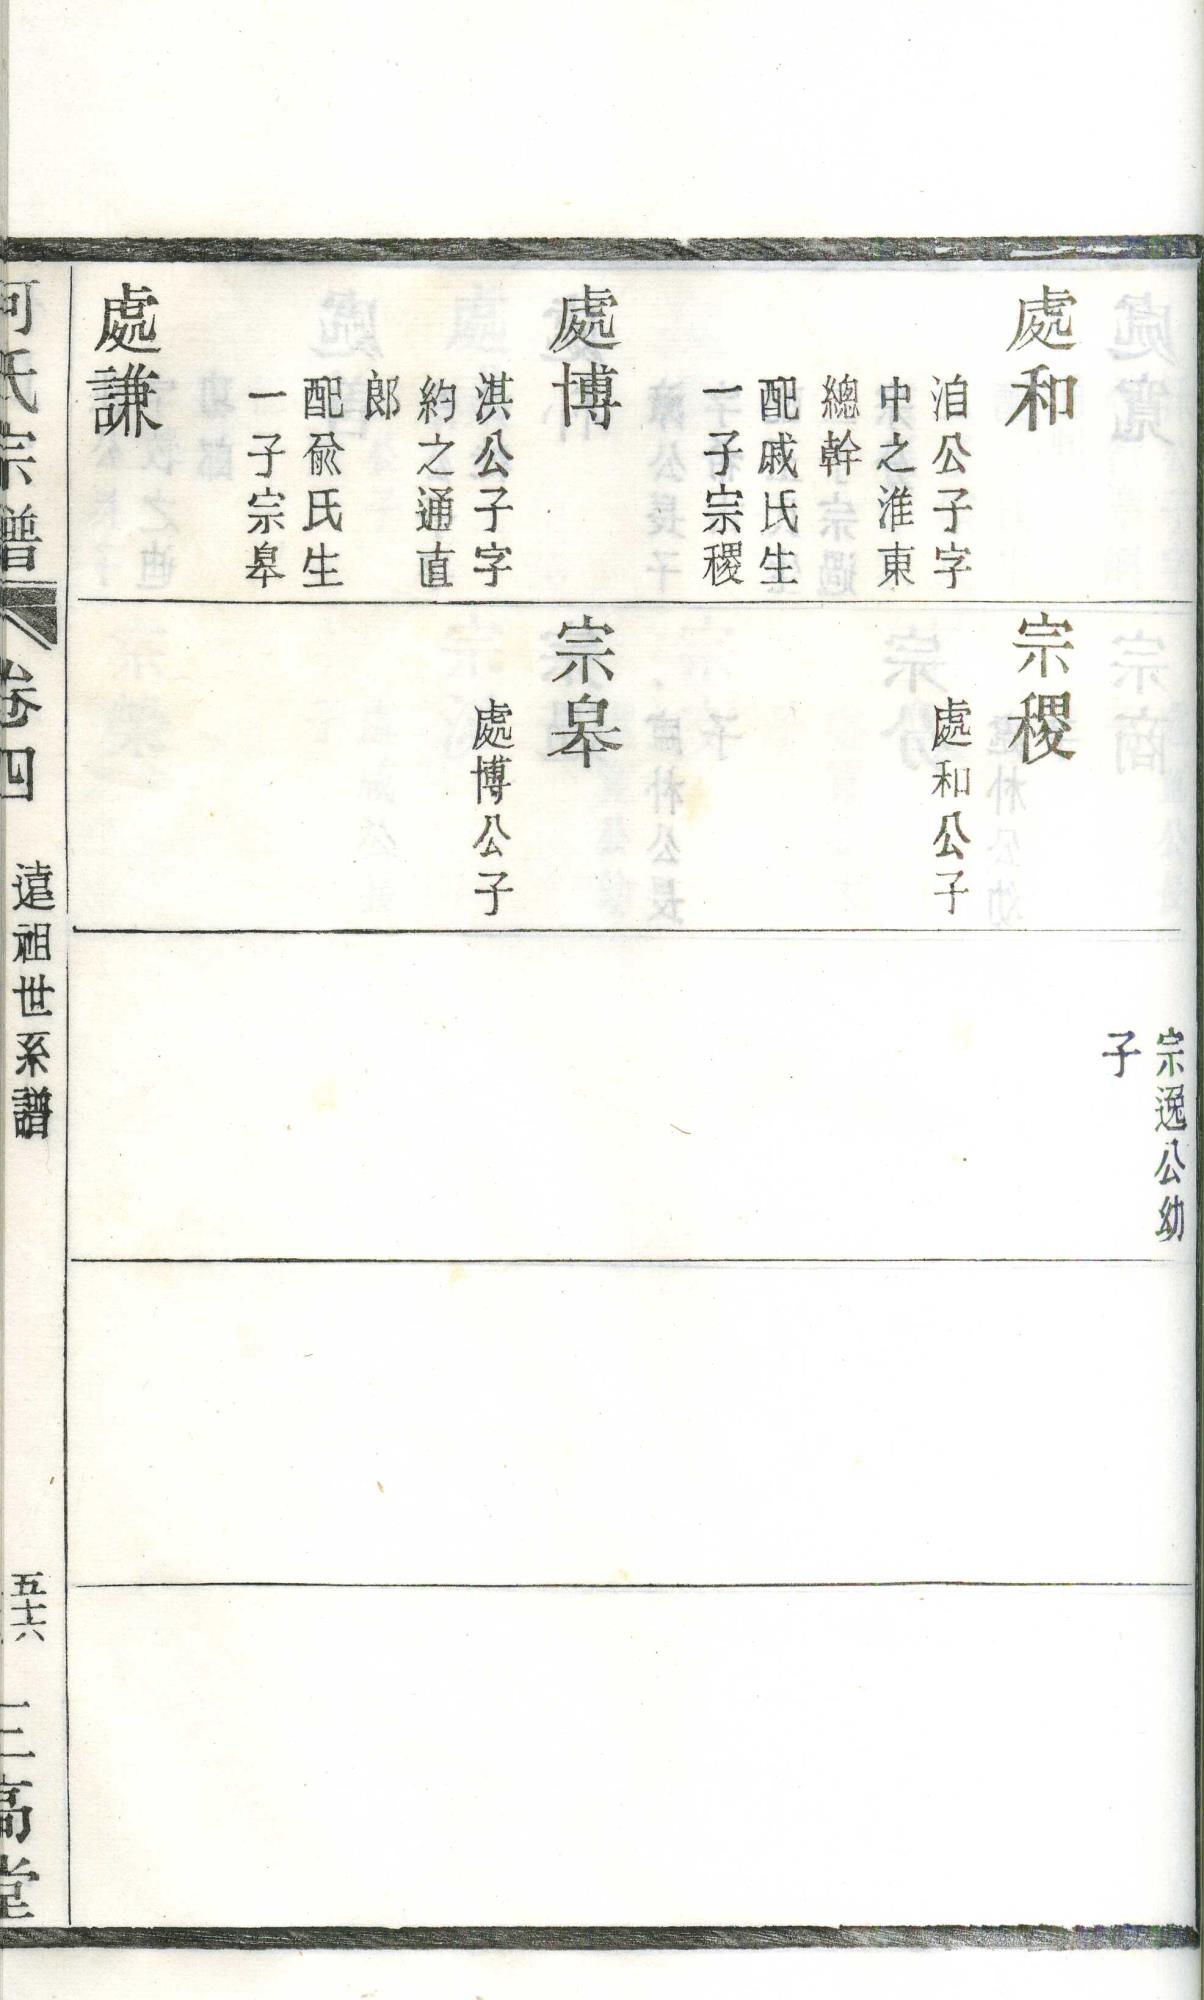 處和
洎公子字
中之淮東
總幹
配戚氏生
一子宗稷
處博
淇公子字
約之通直
郎
配兪氏生
一子宗皋
處謙
宗稷
處和公子
宗皋
處博公子
宗逸公幼
子
何氏宗譜
卷四
遠祖世系譜
五十六
三高堂